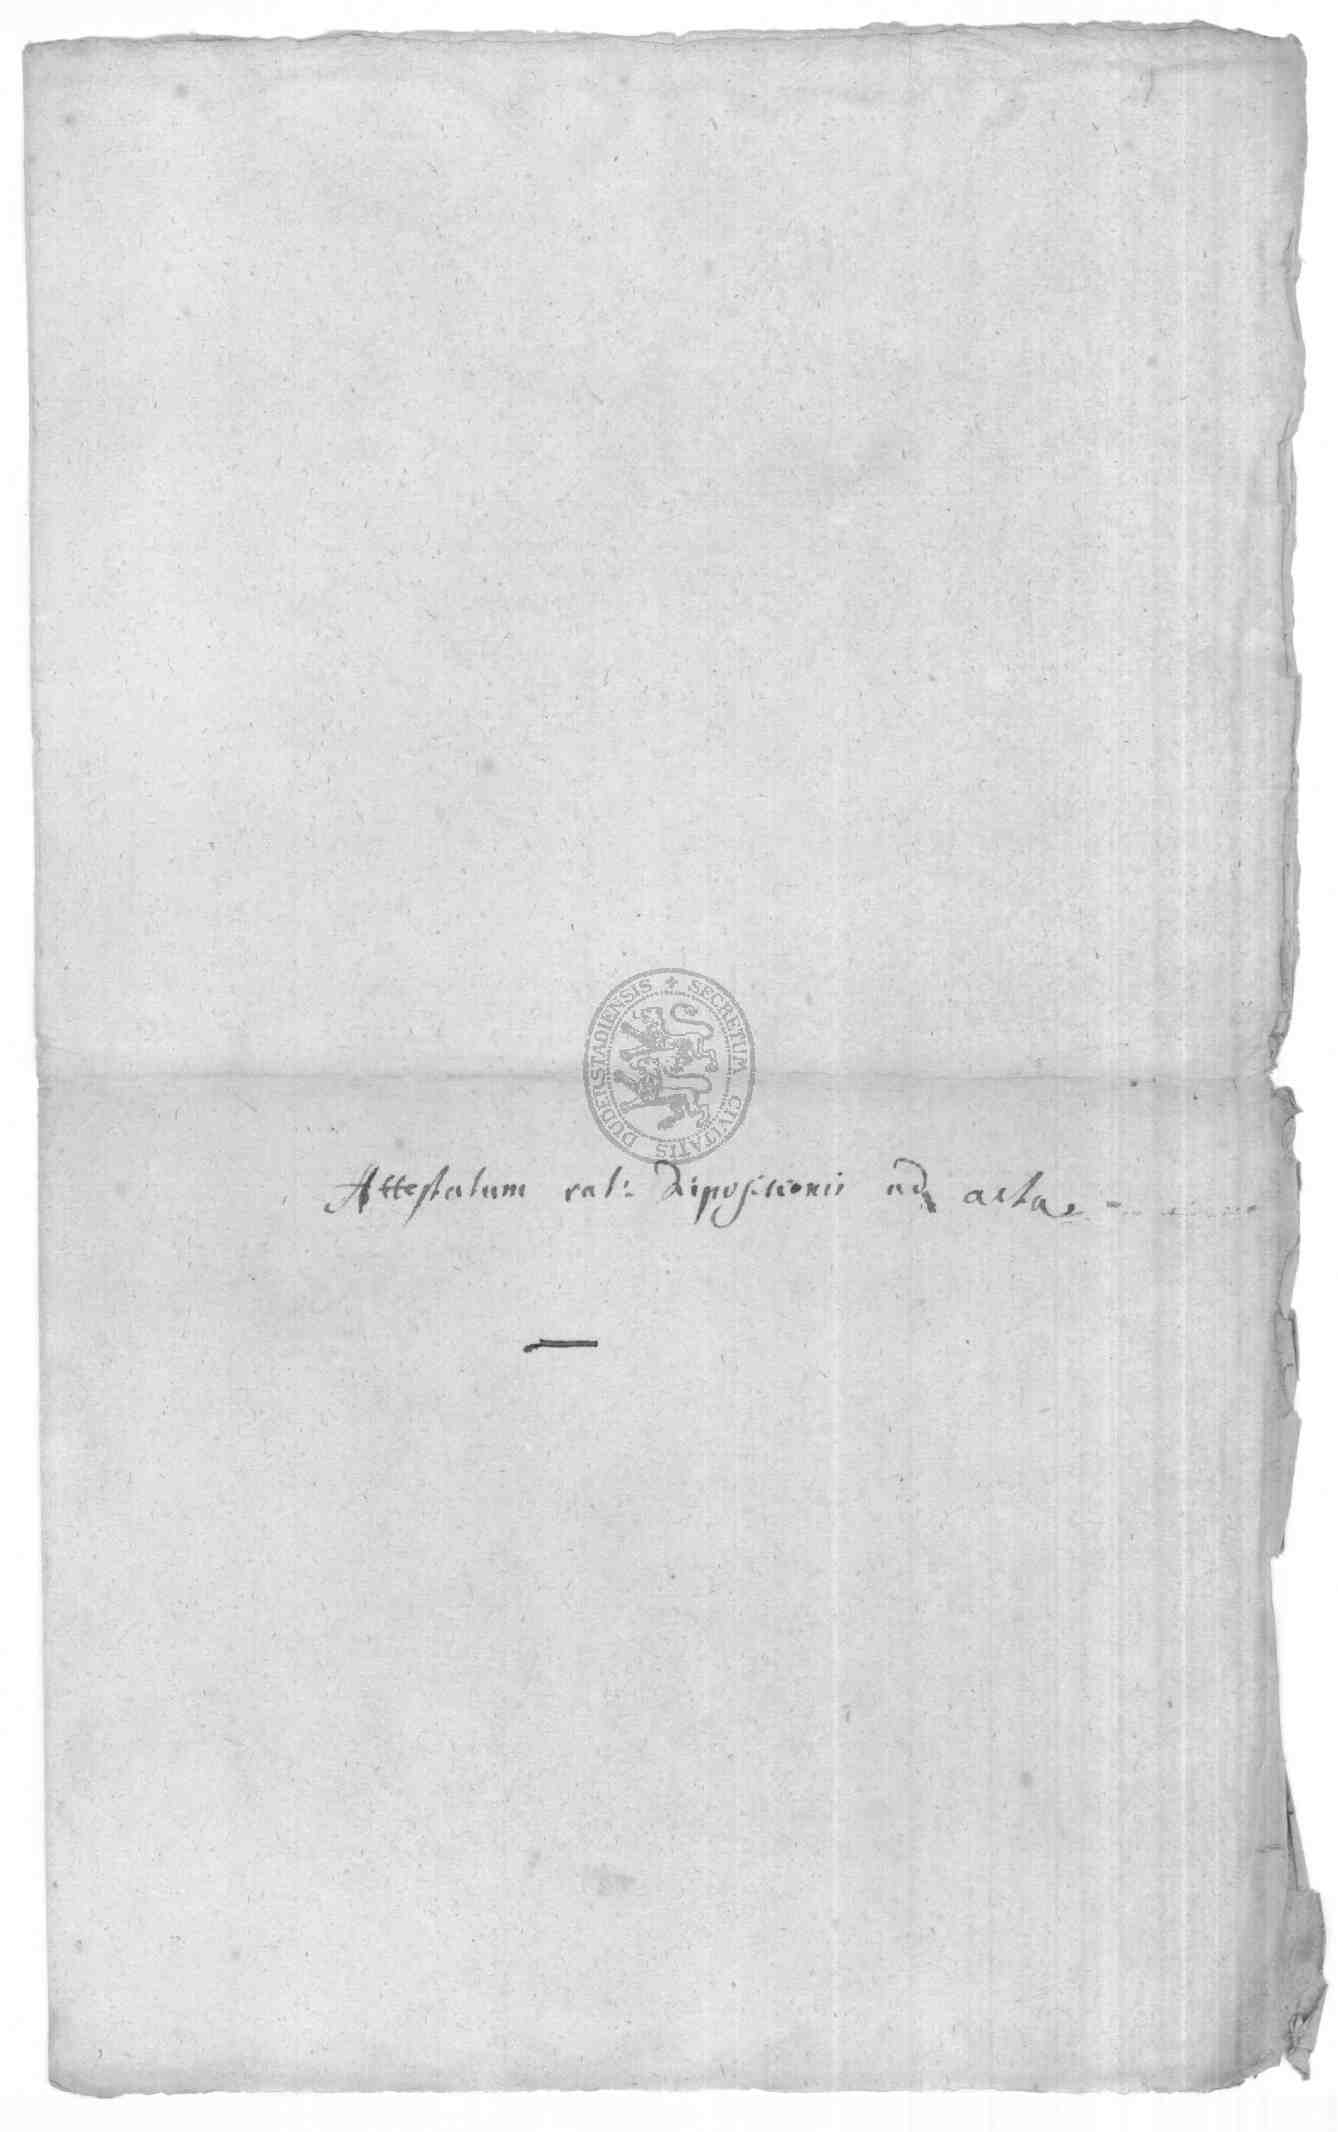 SECRETUM CIVITATIS DUDERSTADIENSIS
Attestatum rat: Dipositionis ad acta